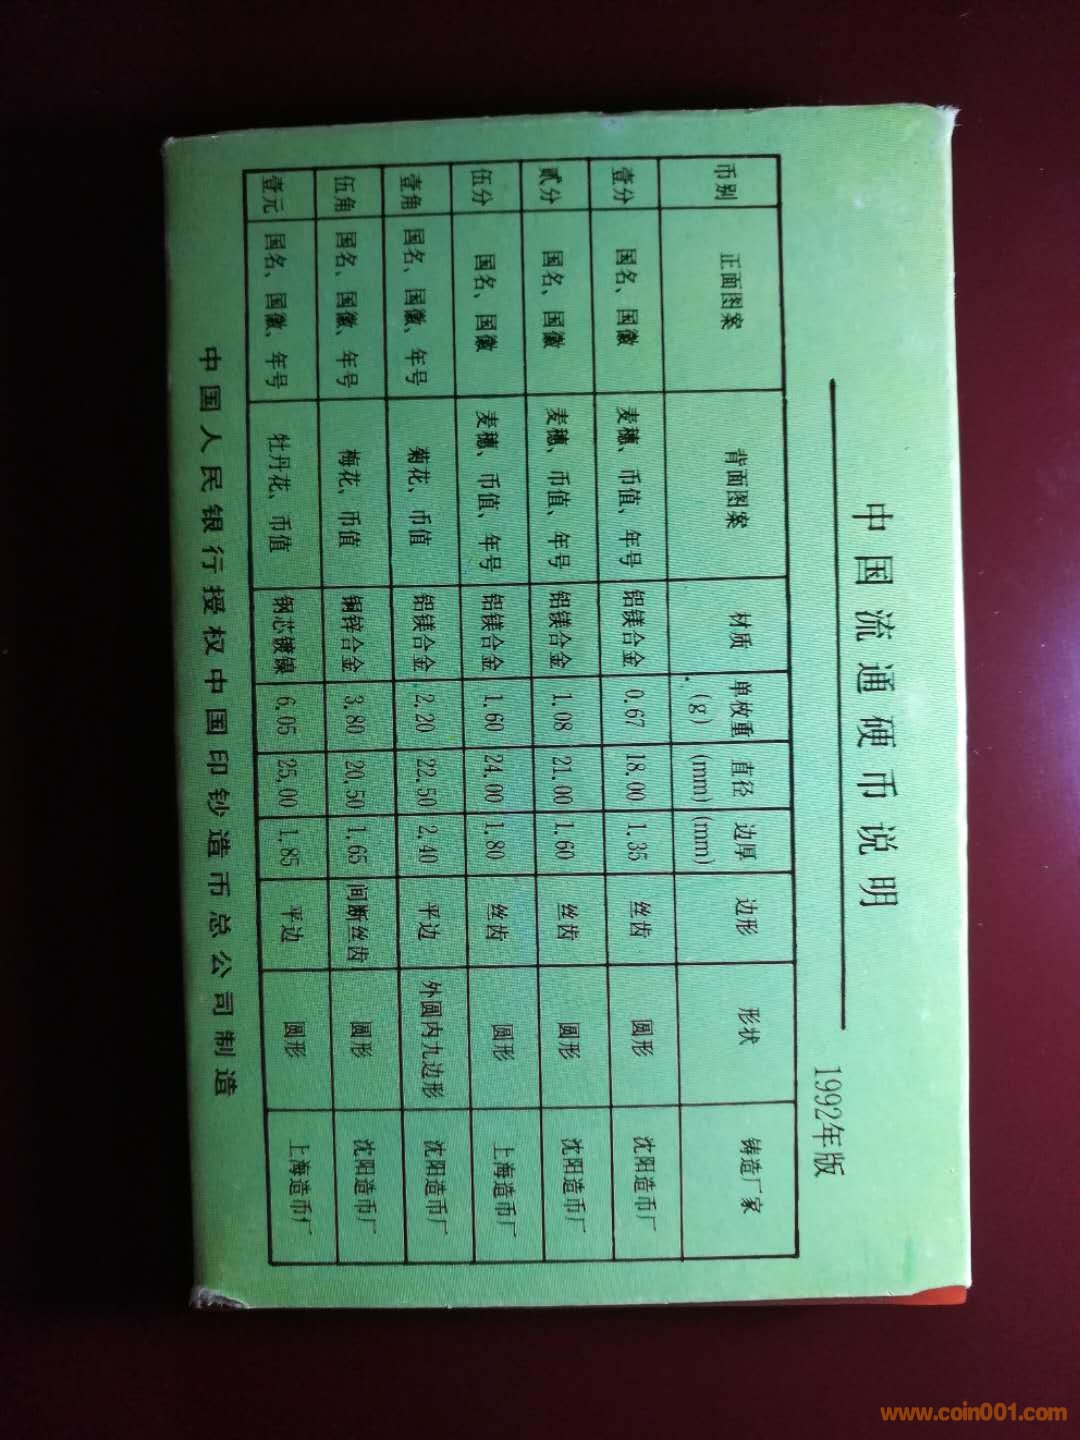 中国流通硬币说明
1992年版
币别 正面图案 背面图案 材质 单枚重(g) 直径(mm) 边厚(mm) 边形 形状 铸造厂家
壹分 国名、国徽 麦穗、币值、年号 铝镁合金 0.67 18.00 1.35 丝齿 圆形 沈阳造币厂
贰分 国名、国徽 麦穗、币值、年号 铝镁合金 1.08 21.00 1.60 丝齿 圆形 沈阳造币厂
伍分 国名、国徽 麦穗、币值、年号 铝镁合金 1.60 24.00 1.80 丝齿 圆形 上海造币厂
壹角 国名、国徽、年号 菊花、币值 铝镁合金 2.20 22.50 2.40 平边 外圆内九边形 沈阳造币厂
伍角 国名、国徽、年号 梅花、币值 铜锌合金 3.80 20.50 1.65 间断丝齿 圆形 沈阳造币厂
壹元 国名、国徽、年号 牡丹花、币值 钢芯镀镍 6.05 25.00 1.85 平边 圆形 上海造币厂
中国人民银行授权中国印钞造币总公司制造
www.coin001.com